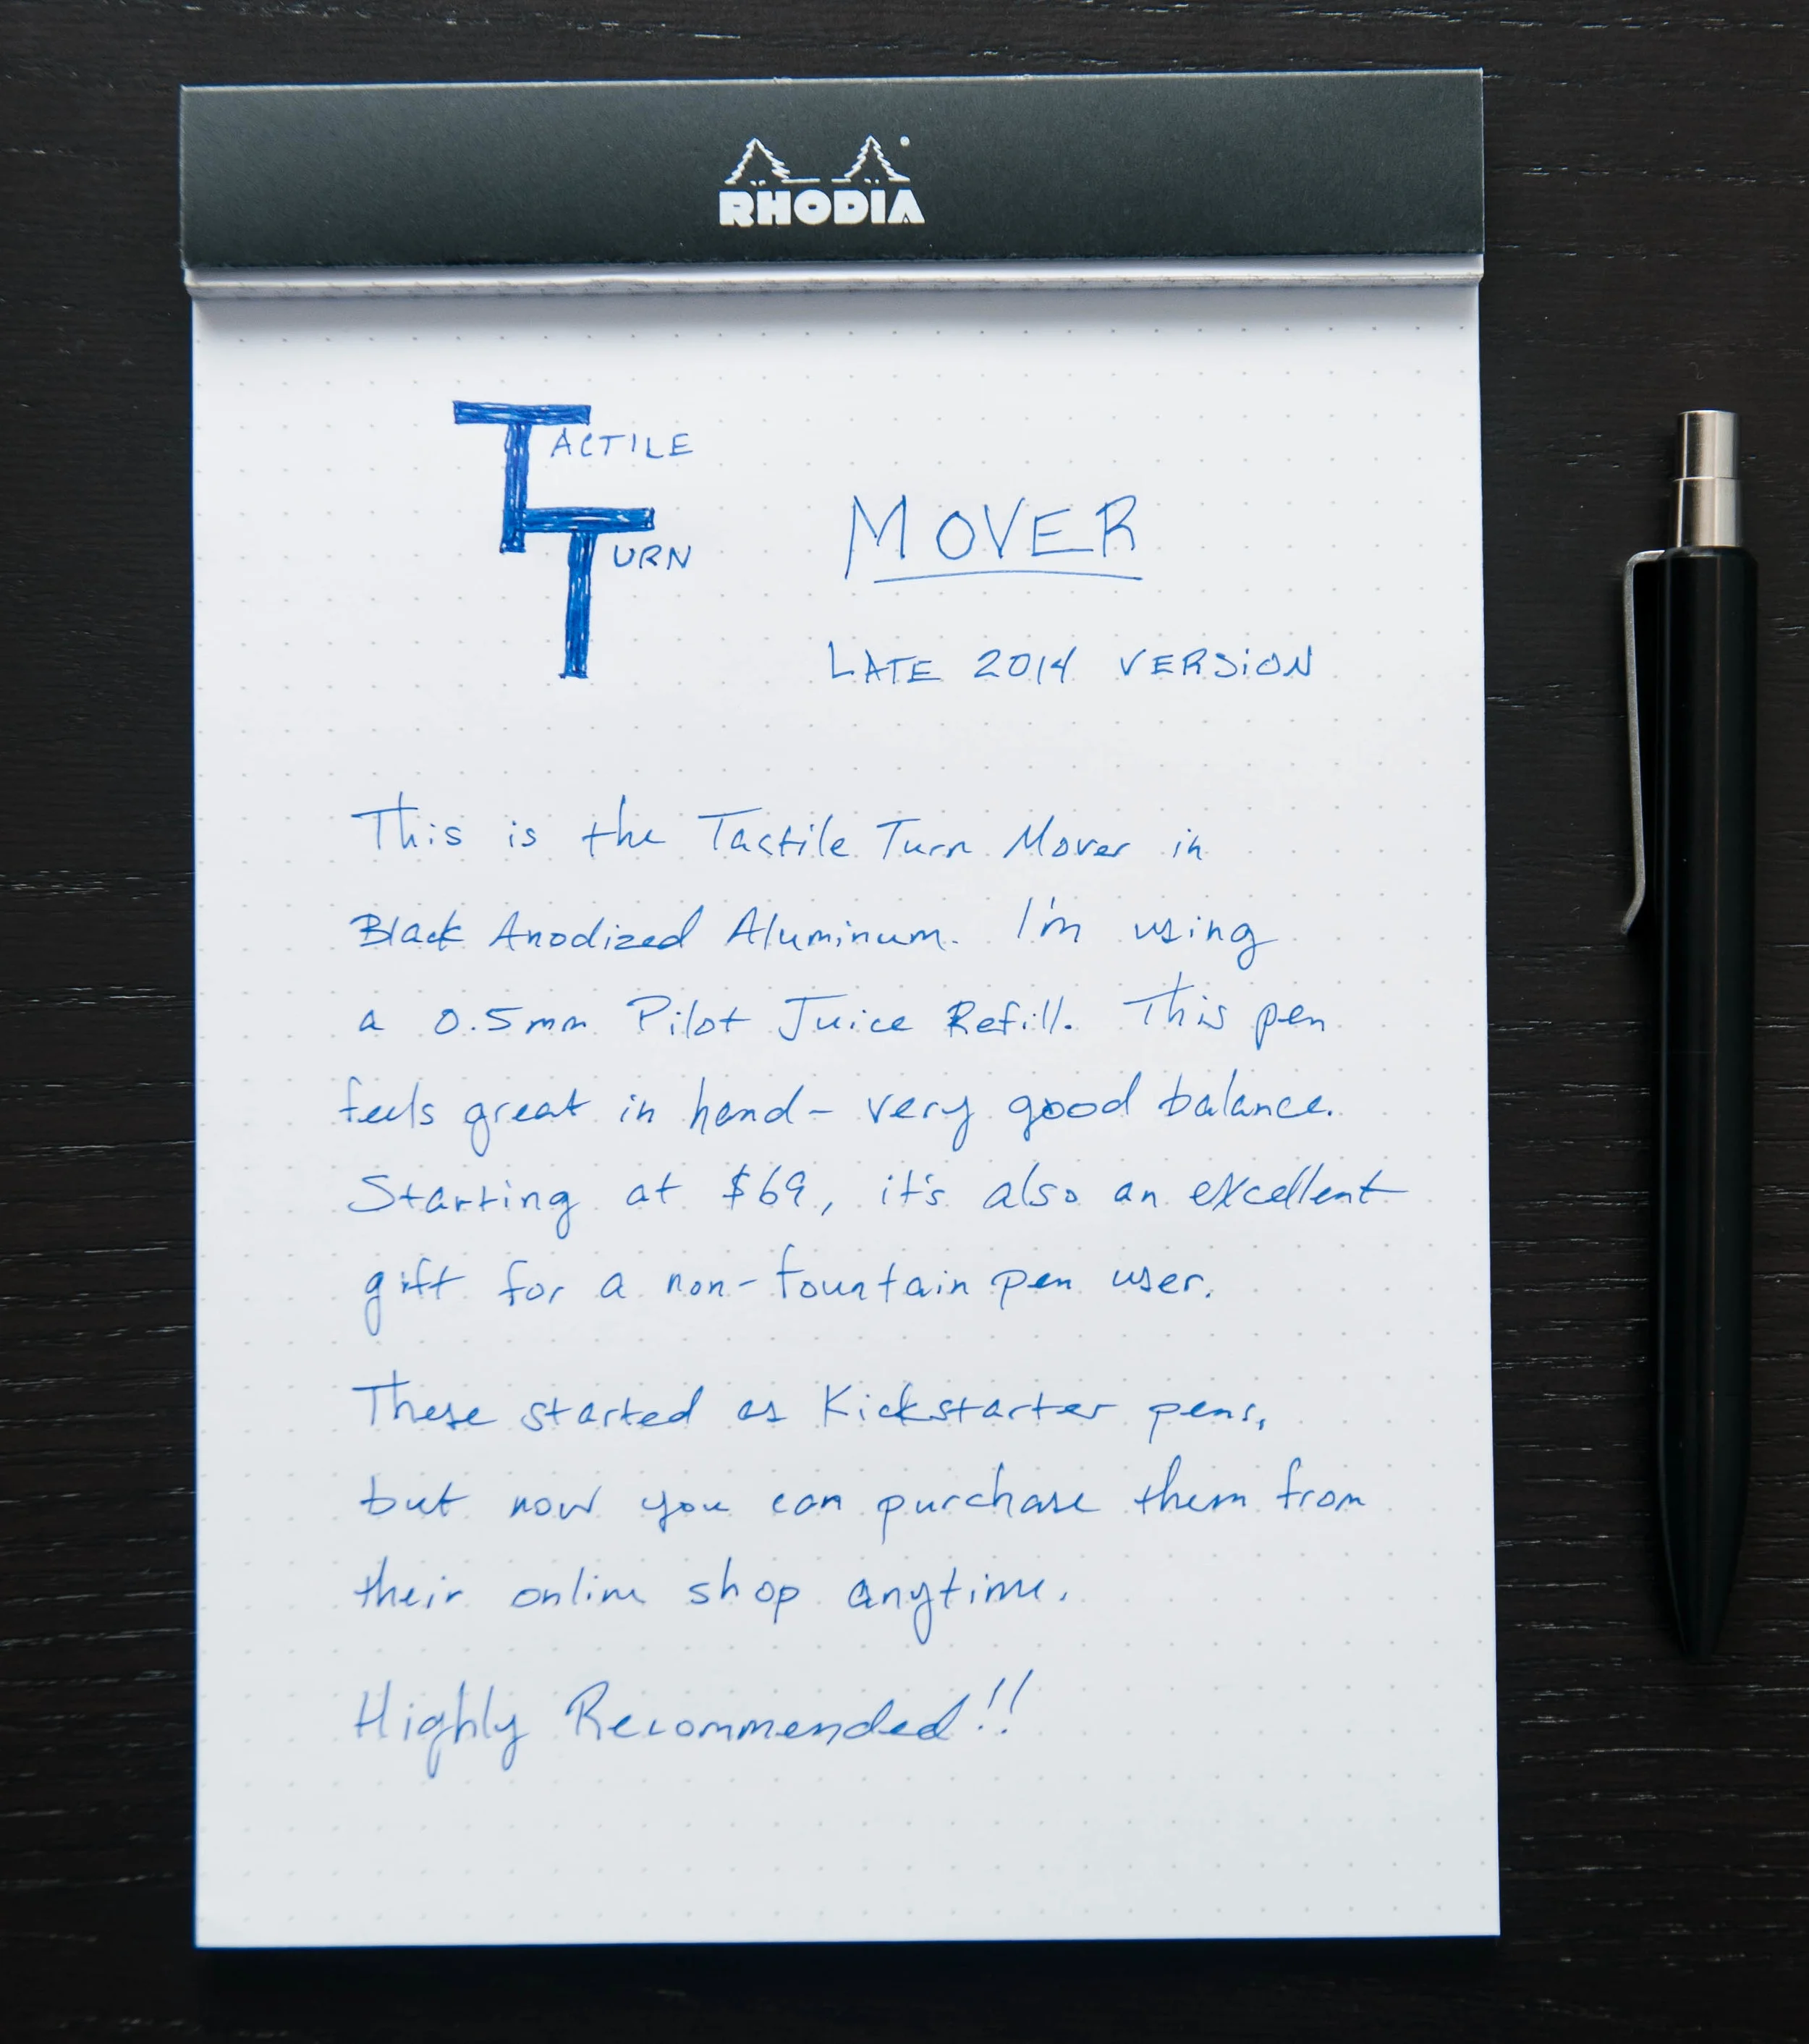 RHODIA
TACTILE
TURN
MOVER
LATE 2014 VERSION
This is the Tactile Turn Mover in
Black Anodized Aluminum. I'm using
a 0.5mm Pilot Juice Refill. This pen
feels great in hand - very good balance.
Starting at $69, it's also an excellent
gift for a non-fountain pen user.
These started as Kickstarter pens,
but now you can purchase them from
their online shop anytime.
Highly Recommended!!